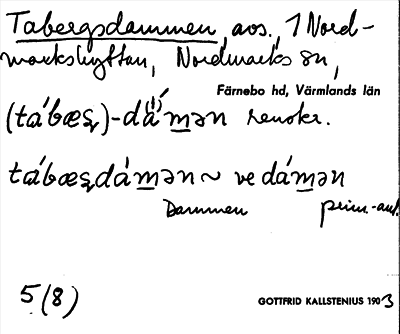 Tabergsdammen, avs. i Nord-
markshyttan, Nordmarks sn,
Färnebo hd, Värmlands län
(tábæȿ)-dàmən renskr.
tábæȿdámən ~ ve dámən
Dammen prim.-anl.
5(8)
GOTTFRID KALLSTENIUS 1903